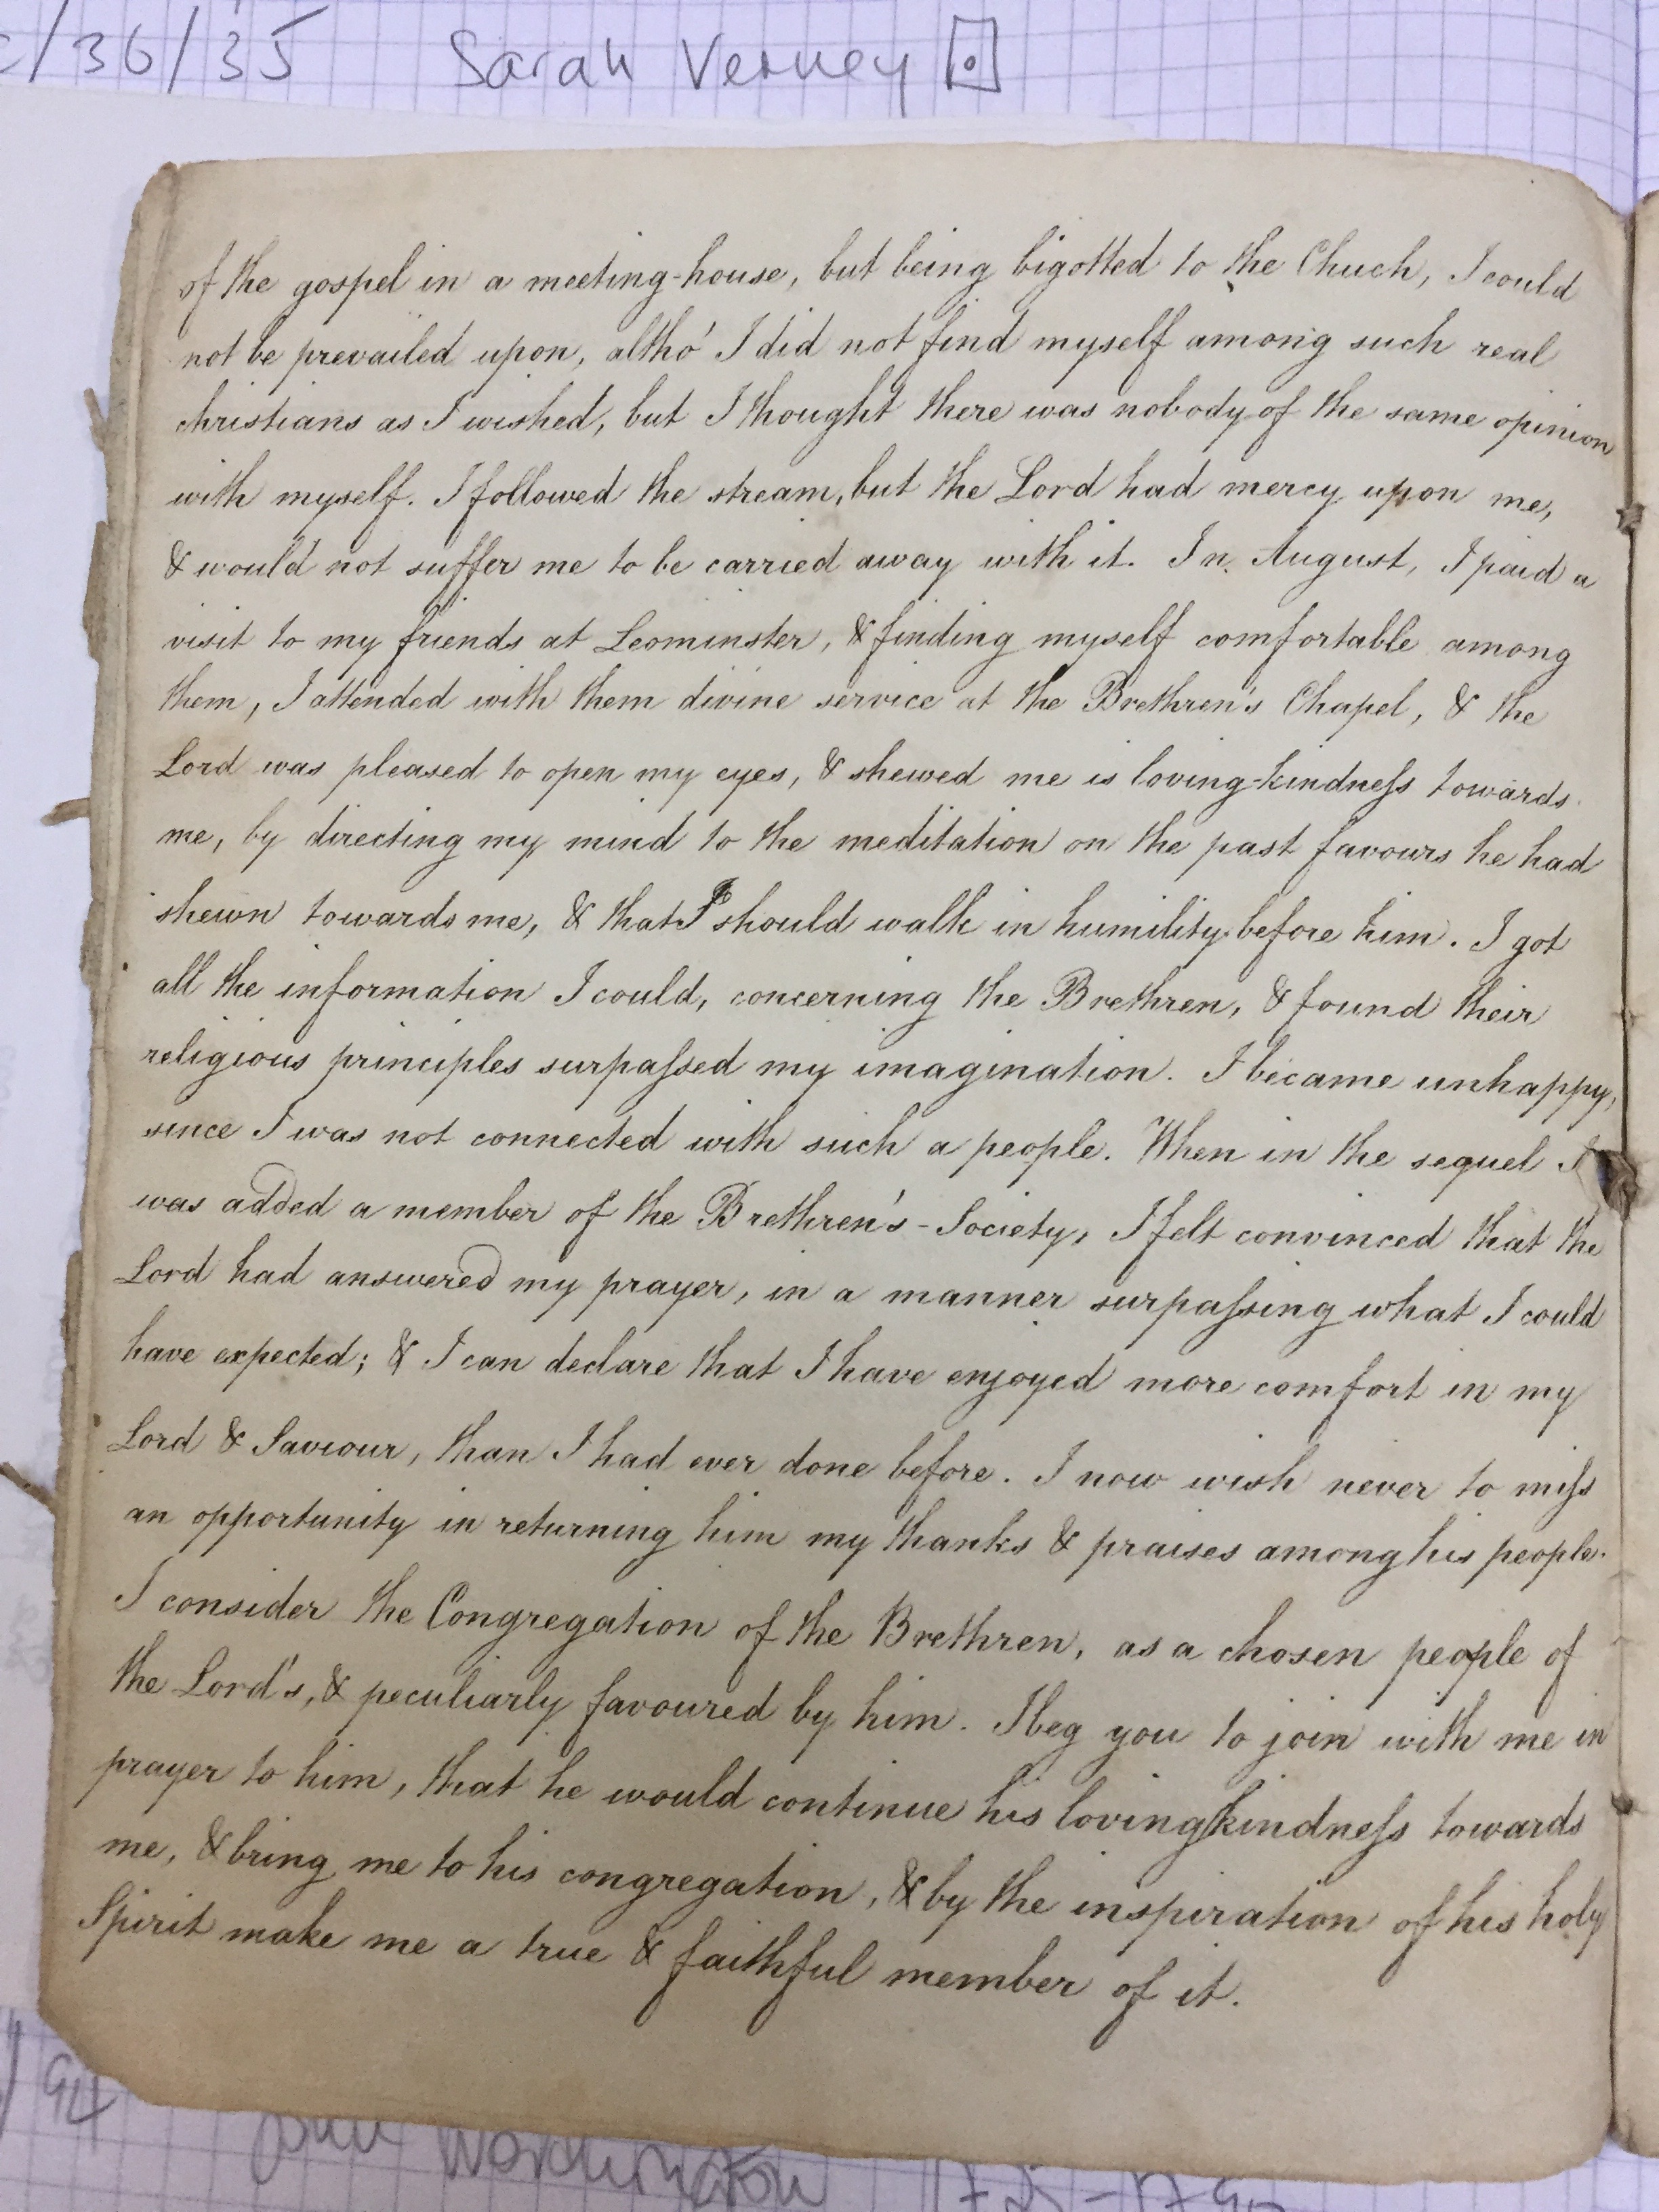 /36/35 Sarah Verney
of the gospel in a meeting-house, but being bigotted to the Chuch, I could
not be prevailed upon, altho' I did not find myself among such real
christians as I wished, but I thought there was nobody of the same opinion
with myself. I followed the stream, but the Lord had mercy upon me,
& would not suffer me to be carried away with it. In August, I paid a
visit to my friends at Leominster, & finding myself comfortable among
them, I attended with them divine service at the Brethren's Chapel, & the
Lord was pleased to open my eyes, & shewed me is loving-kindneſs towards
me, by directing my mind to the meditation on the past favours he had
shewn towards me, & that I should walk in humility before him. I got
all the information I could, concerning the Brethren, & found their
religious principles surpaſsed my imagination. I became unhappy,
since I was not connected with such a people. When in the sequel I
was added a member of the Brethren's-Society, I felt convinced that the
Lord had answered my prayer, in a manner surpaſsing what I could
have expected; & I can declare that I have enjoyed more comfort in my
Lord & Saviour, than I had ever done before. I now wish never to miſs
an opportunity in returning him my thanks & praises among his people.
I consider the Congregation of the Brethren, as a chosen people of
the Lord's, & peculiarly favoured by him. I beg you to join with me in
prayer to him, that he would continue his loving kindneſs towards
me, & bring me to his congregation, & by the inspiration of his holy
Spirit make me a true & faithful member of it.